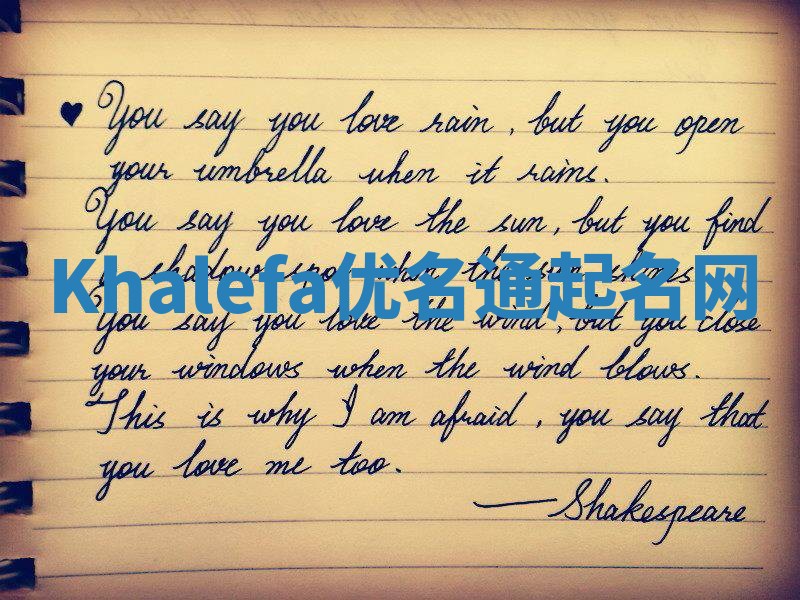 You say you love rain, but you open
your umbrella when it rains.
You say you love the sun, but you find
a shadow spot when the sun shines
Khalefa优名通起名网
You say you love the wind, but you close
your windows when the wind blows.
This is why I am afraid, you say that
you love me too.
—Shakespeare